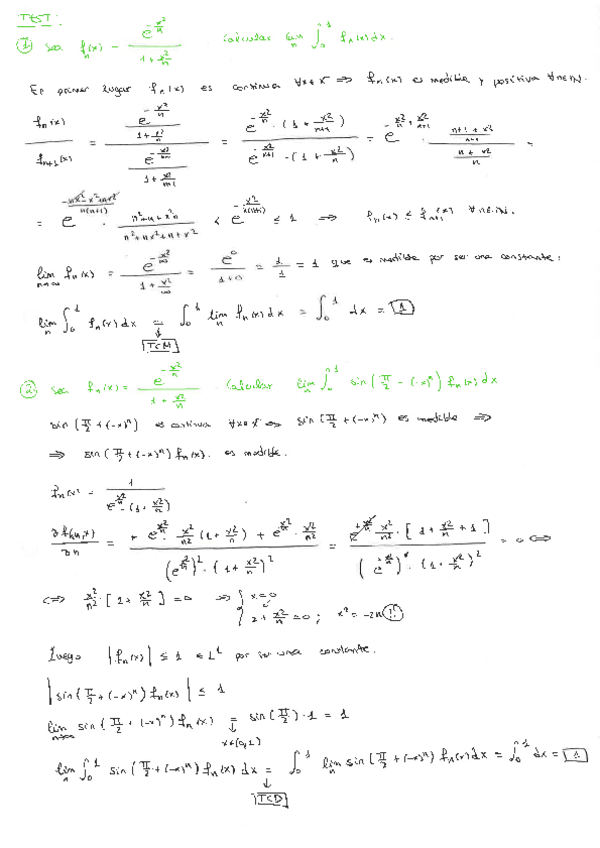 TEST:
① Sea fₙ(x) = e^(-x²/n) / (1 + x²/n) Calcular lim_n ∫₀¹ fₙ(x) dx.
En primer lugar fₙ(x) es continua ∀x∈ ⟹ fₙ(x) es medible y positiva ∀n∈ℕ.
fₙ(x) / fₙ₊₁(x) = (e^(-x²/n) / (1 + x²/n)) / (e^(-x²/(n+1)) / (1 + x²/(n+1))) = e^(-x²/n) · (1 + x²/(n+1)) / e^(-x²/(n+1)) · (1 + x²/n) = e^(-x²/n + x²/(n+1)) · ((n+1+x²)/(n+1)) / ((n+x²)/n) =
= e^((-nx² - x² + nx²)/(n(n+1))) · (n²+n+x²n)/(n²+nx²+n+x²) < e^(-x²/(n(n+1))) ≤ 1 ⟹ fₙ(x) ≤ fₙ₊₁(x) ∀n∈ℕ.
lim_{n→∞} fₙ(x) = e^(-x²/∞) / (1 + x²/∞) = e⁰/(1+0) = 1/1 = 1 que es medible por ser una constante:
lim_n ∫₀¹ fₙ(x) dx = ∫₀¹ lim_n fₙ(x) dx = ∫₀¹ dx = 1
↓
TCM
② Sea fₙ(x) = e^(-x²/n) / (1 + x²/n). Calcular lim_n ∫₀¹ sin(π/2 - (-x)ⁿ) fₙ(x) dx
sin(π/2 + (-x)ⁿ) es continua ∀x∈ ⟹ sin(π/2 + (-x)ⁿ) es medible ⟹
⟹ sin(π/2 + (-x)ⁿ) fₙ(x). es medible.
fₙ(x) = 1 / (e^(x²/n) · (1 + x²/n))
∂f(n,x)/∂n = (+ e^(x²/n) · x²/n² (1 + x²/n) + e^(x²/n) · x²/n²) / ((e^(x²/n))² · (1 + x²/n)²) = (e^(x²/n) x²/n² · [1 + x²/n + 1]) / ((e^(x²/n)) · (1 + x²/n)²) = 0 ⟺
⟺ x²/n² · [2 + x²/n] = 0 ⟹ { x=0
2 + x²/n = 0 ; x² = -2n !!
Luego |fₙ(x)| ≤ 1 ∈ L¹ por ser una constante.
|sin(π/2 + (-x)ⁿ) fₙ(x)| ≤ 1
lim_{n→∞} sin(π/2 + (-x)ⁿ) fₙ(x) = sin(π/2) · 1 = 1
↓
x∈(0,1)
lim_n ∫₀¹ sin(π/2 + (-x)ⁿ) fₙ(x) dx = ∫₀¹ lim_n sin(π/2 + (-x)ⁿ) fₙ(x) dx = ∫₀¹ dx = 1.
↓
TCD